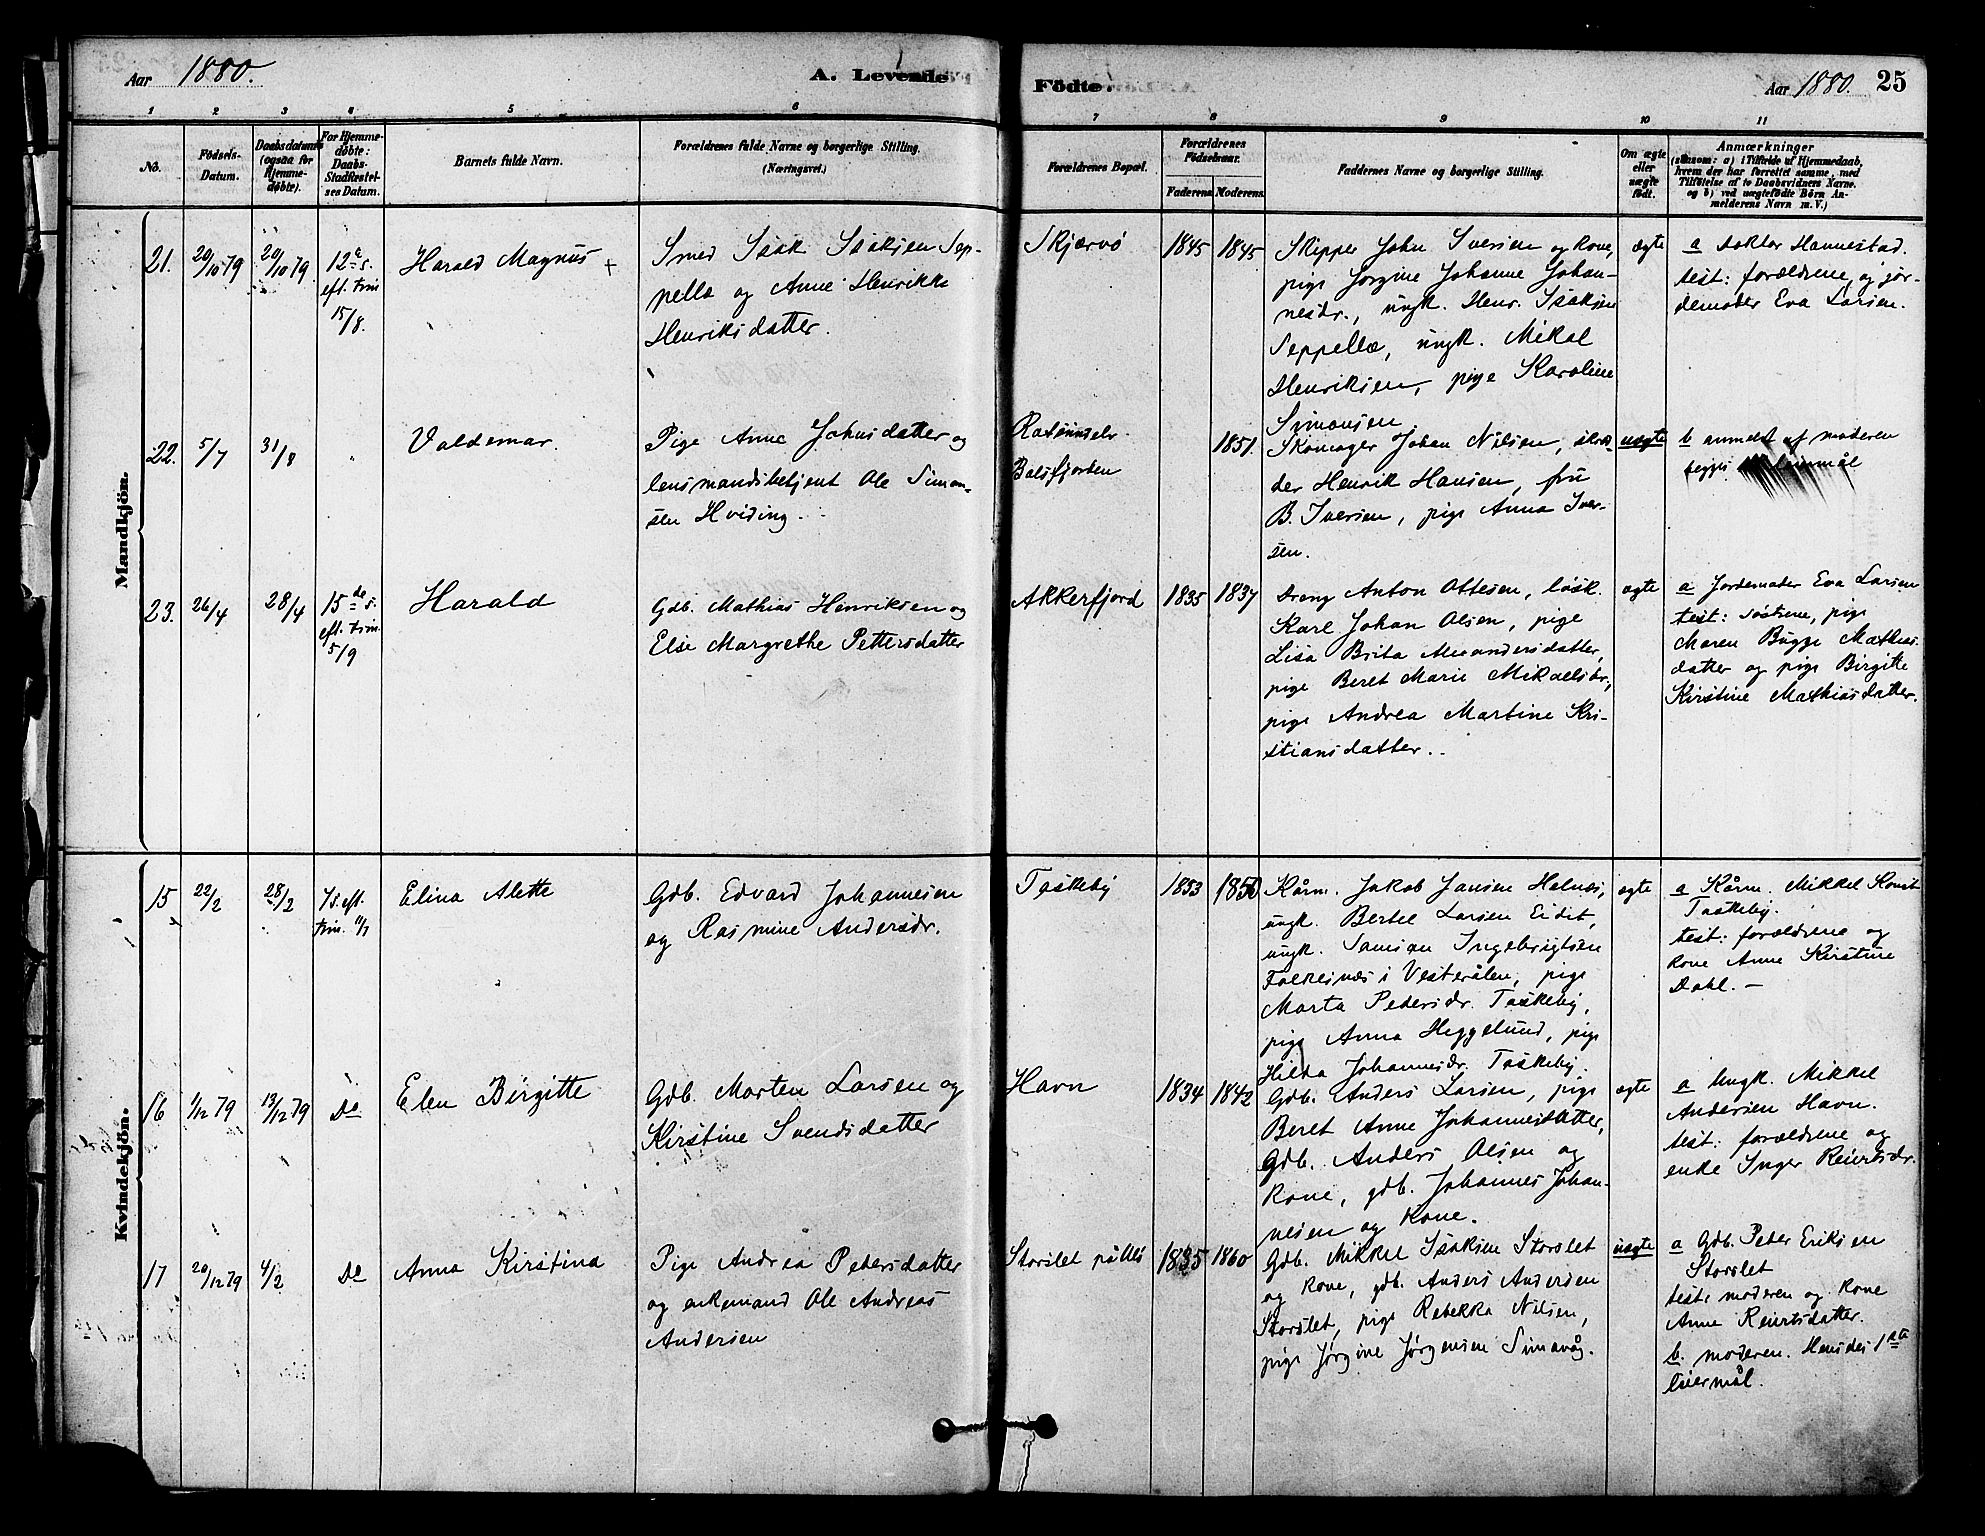 Aar 1880.
A. Levende
Födte.
Aar 1880. 25
1 2 3 4 5 6 7 8 9 10 11
No.
Födsels-
Datum.
Daabsdatum
(ogsaa for
Hjemme-
døbte).
For Hjemme-
døbte:
Daabs-
Stadfæstel-
ses Datum.
Barnets fulde Navn.
Forældrenes fulde Navne og borgerlige Stilling.
(Næringsvei.)
Forældrenes Bopæl.
Forældrenes
Födselsaar.
Faderens
Moderens
Faddernes Navne og borgerlige Stilling.
Om ægte
eller
uægte
født.
Anmærkninger
(saasom: a) i Tilfælde af Hjemmedaab,
hvem der har forrettet samme, med
Tilføielse af to Daabsvidners Navne.
og b) ved uægtefødte Börn An-
melderens Navn m. V.)
Mandkjön.
21. 20/10 79 20/10 79
12te s.
eft. trin
15/8.
Harald Magnus +
Smed Isak Isaksen Sep-
pella og Anne Henrikke
Henriksdatter.
Skjærvö 1845 1845
Skipper John Iversen og kone,
pige Jørgine Johanne Johan-
nesdr., ungk. Henr. Isaksen
Seppella, ungk. Mikal
Henriksen, pige Karoline
Simonsen
ægte
a doktor Hannestad.
test: forældrene og jor-
demoder Eva Larsen.
22. 5/7 31/8 "
Valdemar.
Pige Anna Johnsdatter og
lensmandsbetjent Ole Simon-
sen Hviding.
Balsfjorden
1851.
Skomager Johan Nilsen, skræ-
der Henrik Hansen, fru
B. Iversen, pige Anna Iver-
sen.
uægte
b anmeldt af moderen
begges
23. 26/4 28/4
15de s.
eft. trin.
5/9
Harald
Gdb. Mathias Henriksen og
Else Margrethe Pettersdatter
Akkerfjord 1835 1837
Dreng Anton Ottesen, løsk.
Karl Johan Olsen, pige
Lisa Brita Meandersdatter,
pige Beret Marie Mikaelsdr.,
pige Andrea Martine Kri-
stiansdatter.
ægte
a Jordemoder Eva Larsen
test: søstrene, pige
Maren Bugge Mathias
datter og pige Birgitte
Kirstine Mathiasdatter.
Kvindekjön.
15 22/2 28/2
7 s. eft.
trin. 11/7
Elina Alette
Gdb. Edvard Johannesen
og Rasmine Andersdr.
Taskeby 1853 1850
Kårm. Jakob Jansen Helnæs,
ungk. Bertel Larsen Eidet,
ungk. Samson Ingebrigtsen
i Vesterålen, pige
Marta Petersdr. Taskeby,
pige Anna Heggelund, pige
Hilda Johannesdr. Taskeby.
ægte
a Kårm. Mikkel
Taskeby.
test: forældrene og
kone Anne Kirstine
Dahl. —
16 1/12 79 13/12 79 Do
Elen Birgitte
Gdb. Morten Larsen og
Kirstine Svendsdatter
Havn 1834 1842
Gdb. Anders Larsen, pige
Beret Anne Johannesdatter,
Gdb. Anders Olsen og
kone, gdb. Johannes Johan-
nesen og kone.
ægte
a Ungk. Mikkel
Andersen Havn.
test: forældrene og
enke Inger Reiertsdr.
17 20/12 79 4/2 Do
Anna Kirstina
Pige Andrea Petersdatter
og enkemand Ole Andreas
Andersen
Storslet på Ulö 1835 1860
Gdb. Mikkel Isaksen Storslet
og kone, gdb. Anders Andersen
Storslet, pige Rebekka Nilsen,
pige Jørgine Jørgensen Simavåg.
uægte
a Gdb. Peder Eriksen
Storslet
test: moderen og kone
Anne Reiertsdatter.
b. moderen. Hendes 1ste
leiermål.